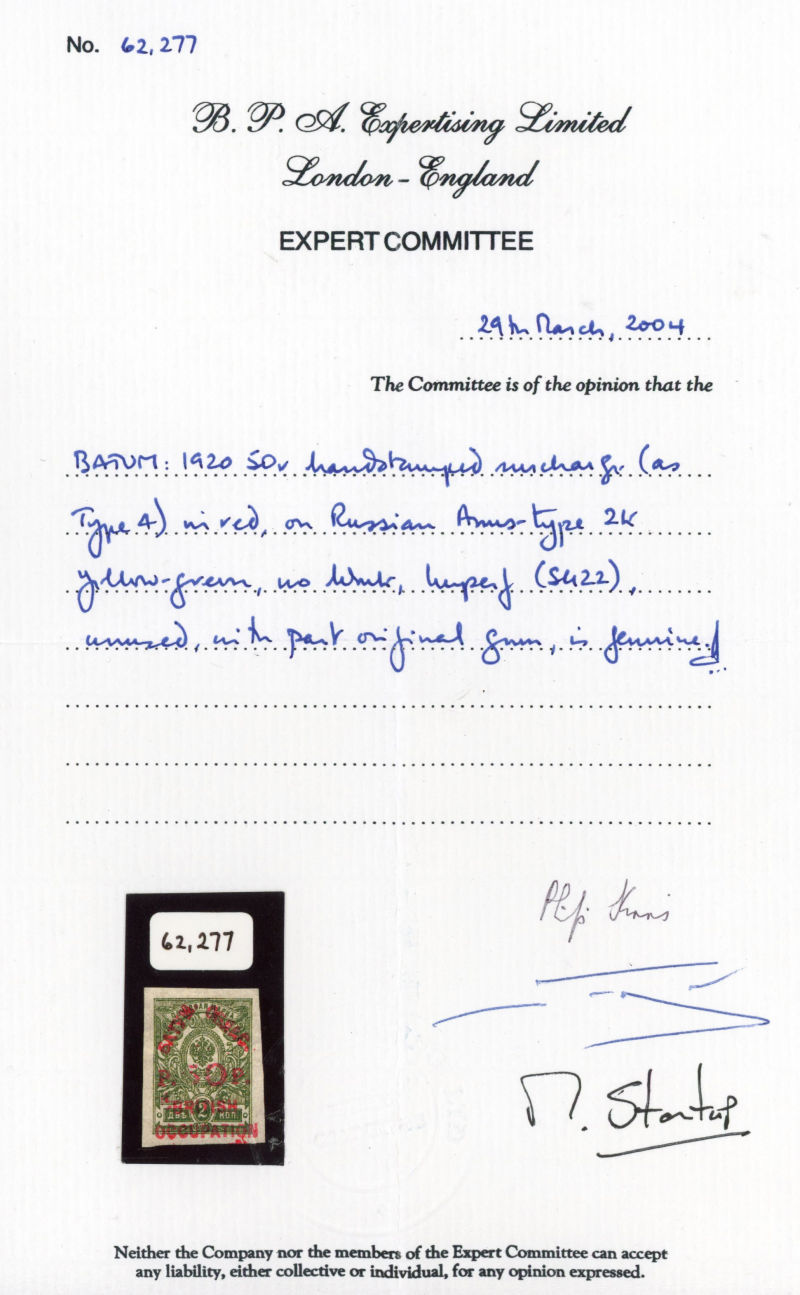 No. 62,277
B. P. A. Expertising Limited
London - England
EXPERT COMMITTEE
29th March, 2004
The Committee is of the opinion that the
BATUM: 1920 50r handstamped surcharge (as
Type 4) in red, on Russian Arms-type 2k
yellow-green, no wmk, Imperf (SG22),
unused, with part original gum, is genuine.
62,277
P. 50 P.
BRITISH
2
ДВѢ КОП.
OCCUPATION
M. Startup
Neither the Company nor the members of the Expert Committee can accept
any liability, either collective or individual, for any opinion expressed.